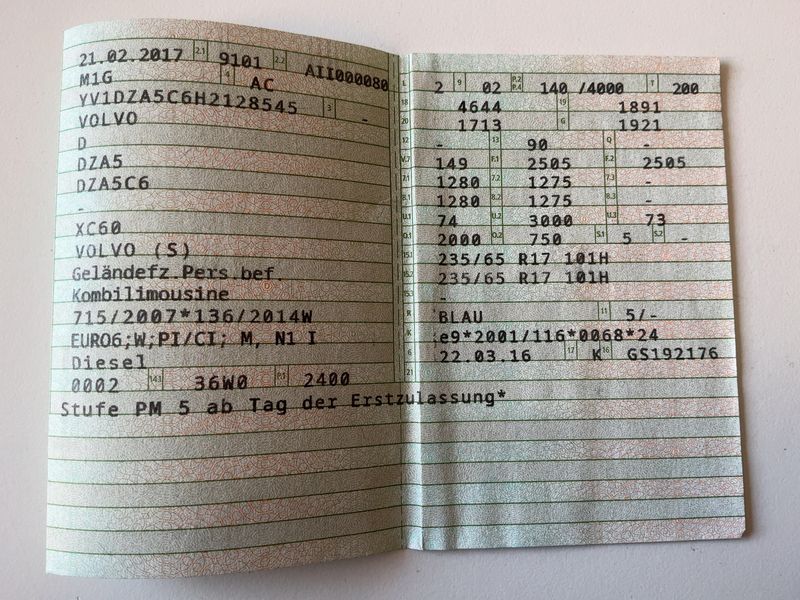 21.02.2017 2.1 9101 2.2 AII000080
M1G 4 AC
YV1DZA5C6H2128545 3 -
VOLVO
D
DZA5
DZA5C6
-
XC60
VOLVO (S)
Geländefz.Pers.bef.
Kombilimousine
715/2007*136/2014W
EURO6;W;PI/CI; M, N1 I
Diesel
0002 14.1 36W0 P.1 2400
Stufe PM 5 ab Tag der Erstzulassung*
L 2 9 02 P.2 P.4 140 /4000 T 200
18 4644 19 1891
20 1713 G 1921
12 - 13 90 Q -
V.7 149 F.1 2505 F.2 2505
7.1 1280 7.2 1275 7.3 -
8.1 1280 8.2 1275 8.3 -
U.1 74 U.2 3000 U.3 73
O.1 2000 O.2 750 S.1 5 S.2 -
15.1 235/65 R17 101H
15.2 235/65 R17 101H
15.3 -
R BLAU 11 5/-
K e9*2001/116*0068*24
6 22.03.16 17 K 16 GS192176
21